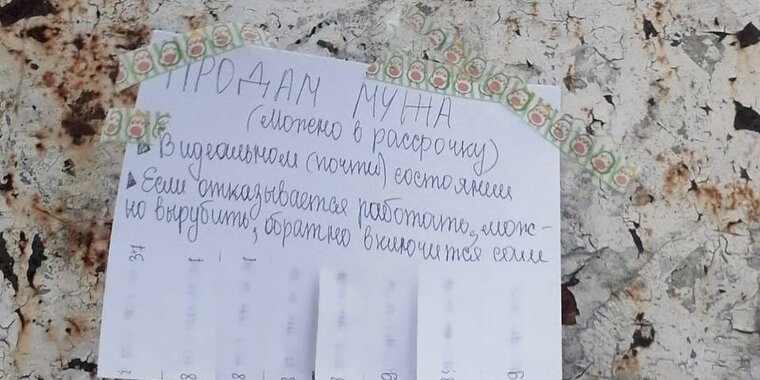 ПРОДАМ МУЖА
(можно в рассрочку)
В идеальном (почти) состоянии
Если отказывается работать, мож-
но вырубить, обратно включится сам